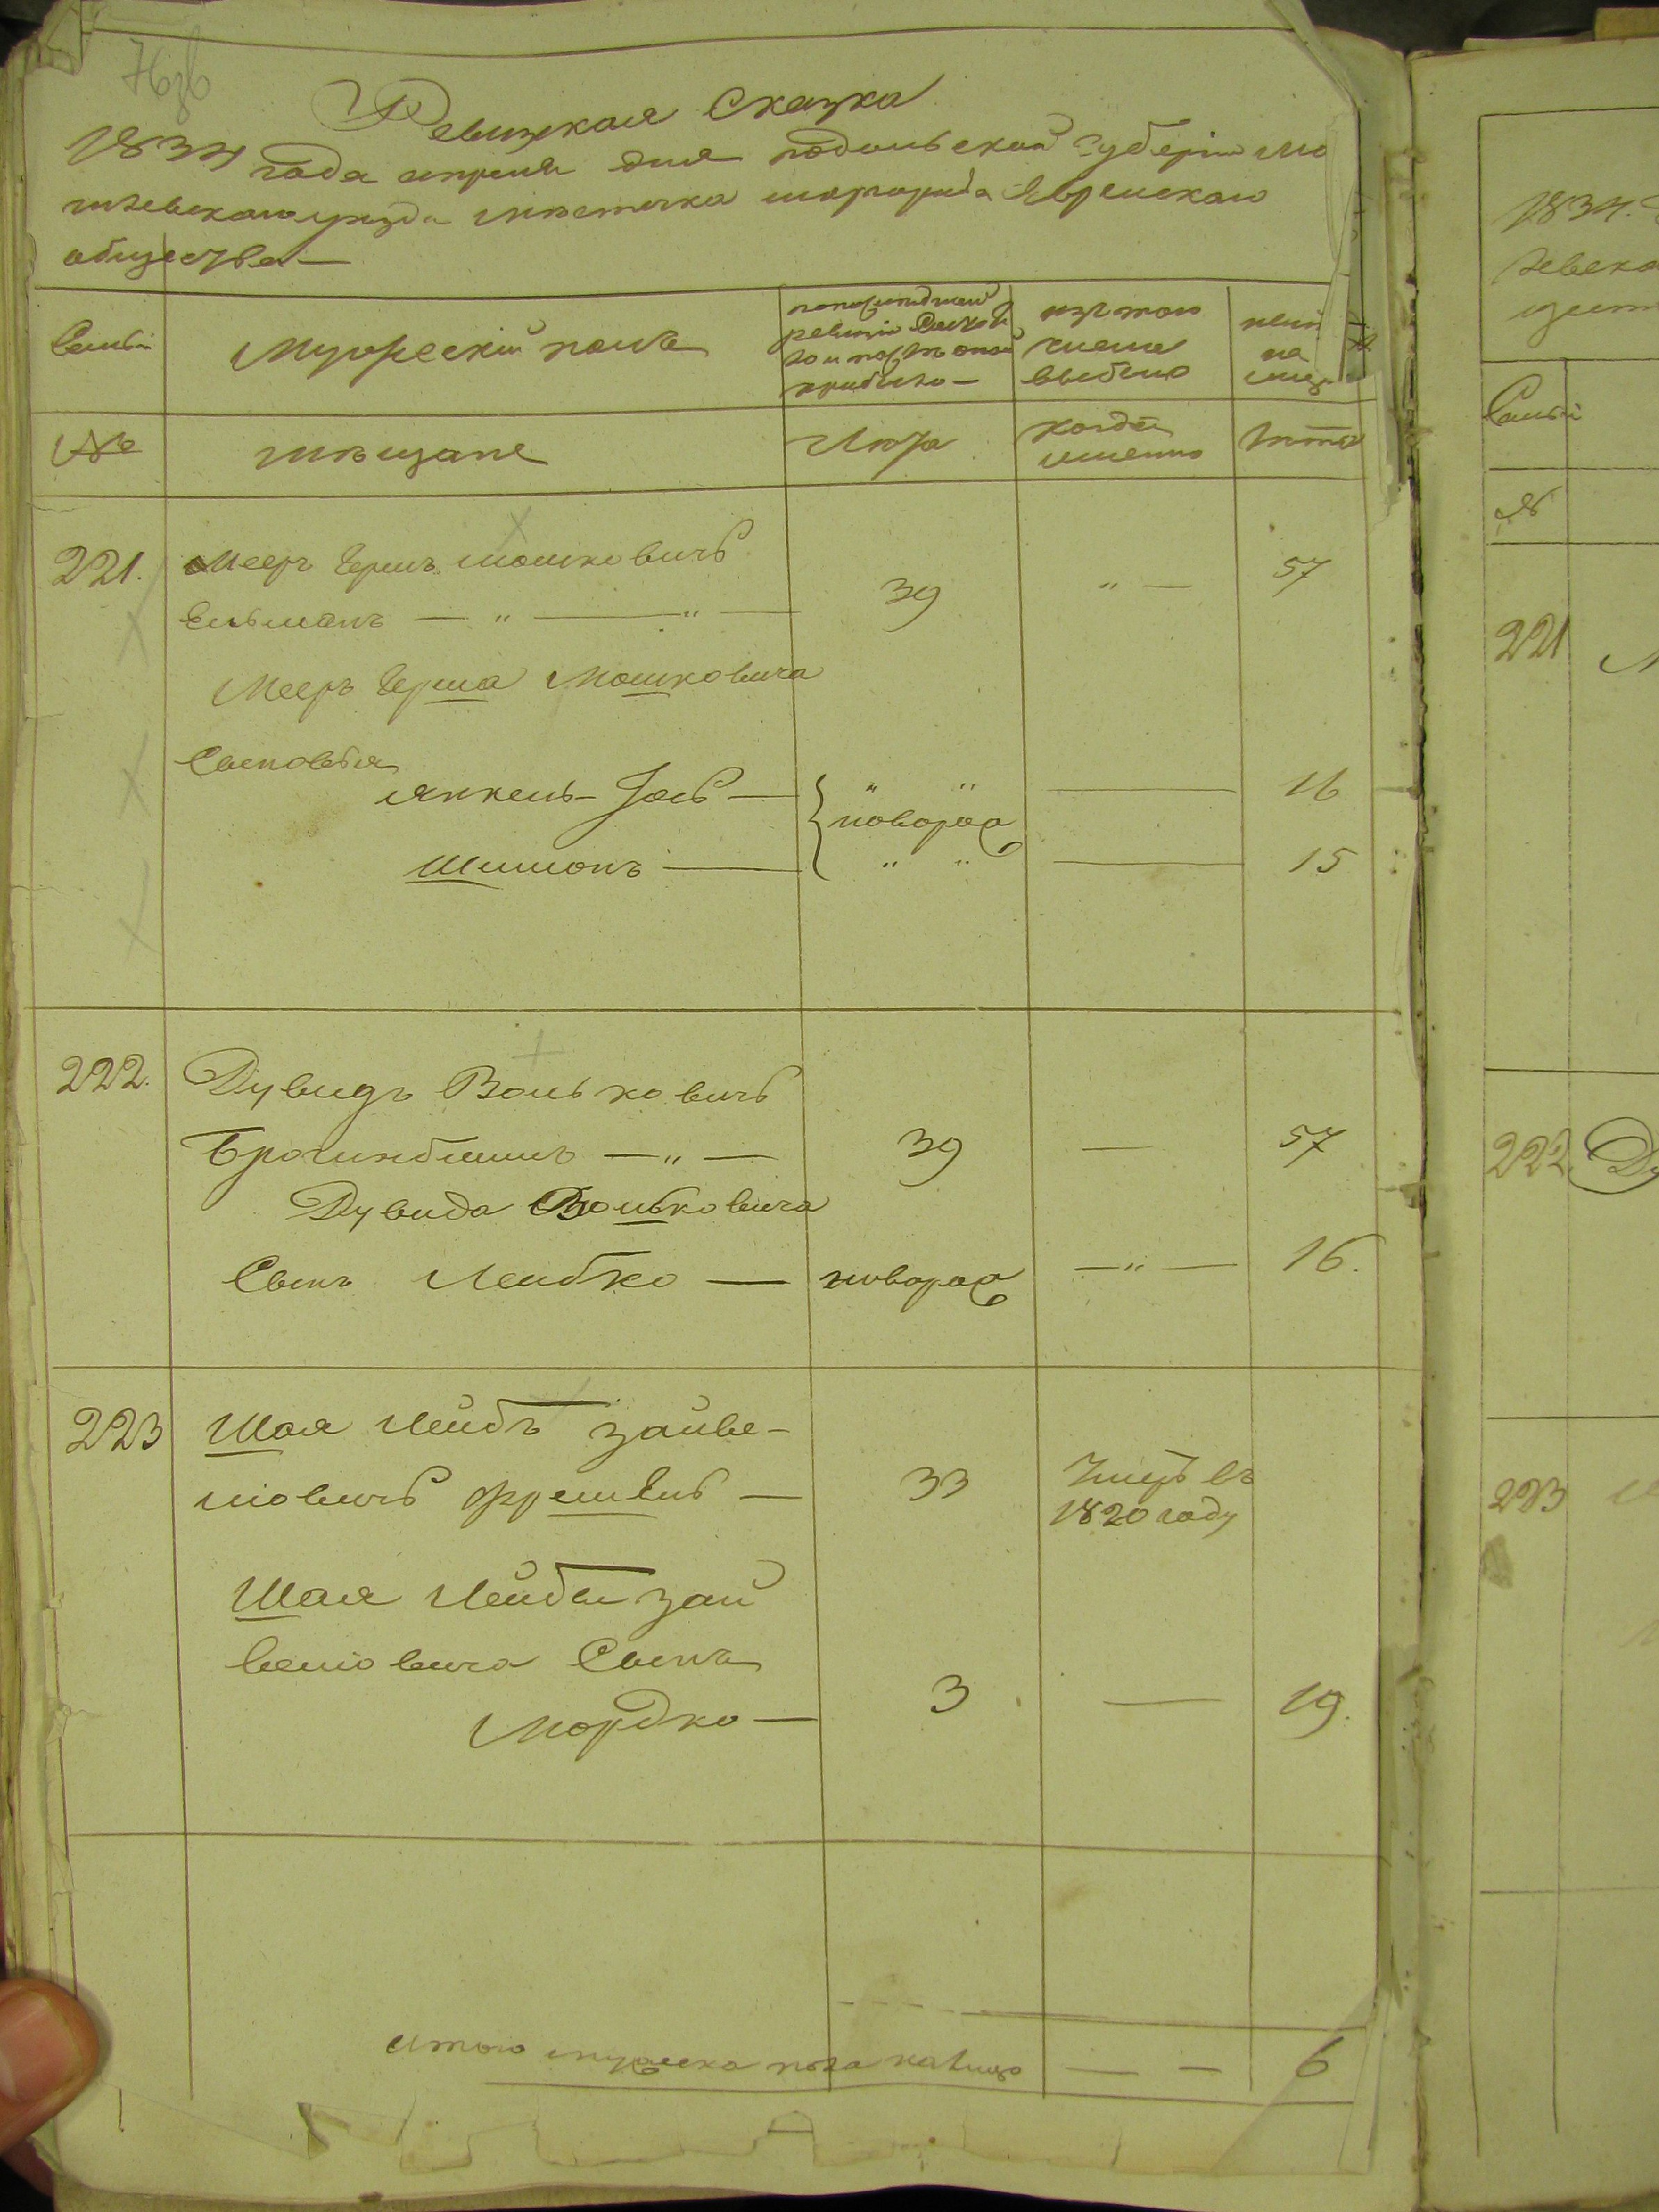 Ревизская Сказка
1834 года апреля дня подольской губерiи мо
гилевскаго уезда местечка шаргорода Еврейскаго
общества —
Семьи
Мужескiй полъ
ревизiи
прибыло —
изъ того
числа
выбыло
ныне
на
лицо
№
мещане
Лета
когда
именно
Лета
221. Мееръ Гершъ Мошковичъ
Гельманъ — " — " — 39 " — 57
Мееръ Герша Мошковича
Сыновья
Янкель-Іосъ — " " — 16
новорож
Шимонъ — " " — 15
222. Дувидъ Вольковичъ
— " — 39 — 57
Дувида Вольковича
Сынъ Лейбко — новорож — " — 16.
223 Шая Лейбъ Зайве-
лiовичъ — 33 Умеръ въ
1820 году
Шая Лейба Зай
велiовича Сынъ
Мордко — 3 — 19.
итого мужеска пола налицо — — 6
1834.
Семьи
№
221
222. Ду
223